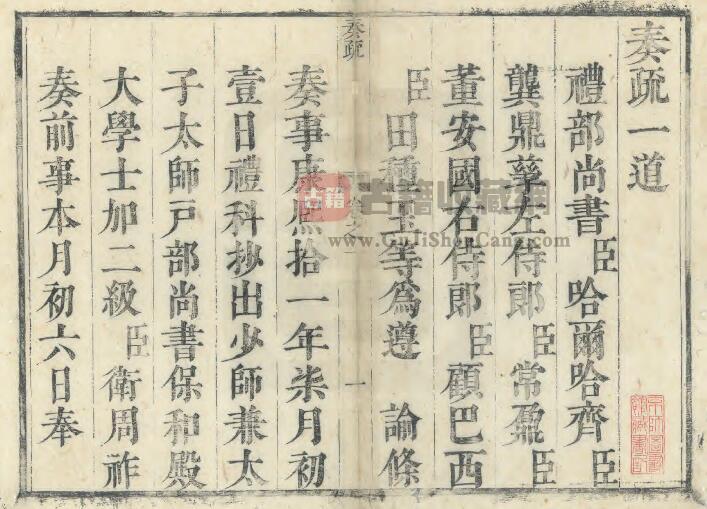 奏疏一道
禮部尚書臣哈爾哈齊臣
龔鼎孳左侍郎臣常鼐臣
董安國右侍郎臣顧巴西
臣田種玉等為遵 諭條
奏疏
一
奏事康熙拾一年柒月初
壹日禮科抄出少師兼太
子太師戶部尚書保和殿
大學士加二級臣衛周祚
奏前事本月初六日奉
古籍
古籍收藏網
www.GuJiShouCang.com